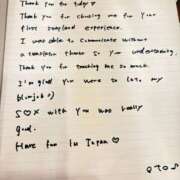 Thank you for today♡
Thank you for choosing me for your
first soapland experience.
I was able to communicate without
a translation thanks to you
Thank you for teaching me so much.
I'm glad you were so into my
blowjob♪
S♡X with you was really
good.
Have fun in Japan♡